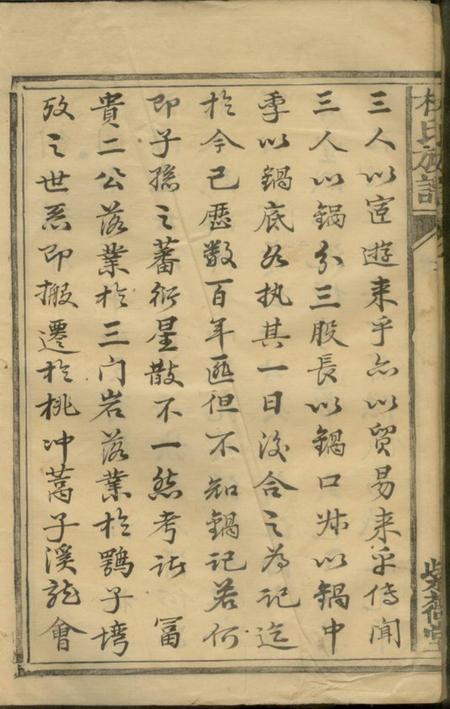 氏族譜
三人以宦遊来乎亦以貿易来乎傳聞
三人以鍋分三股長以鍋口次以鍋中
季以鍋底各执其一日後合之為記迄
於今已歷数百年匪但不知鍋記若何
即子孫之蕃衍星散不一然考诸 冨
貴二公落業於三门岩落業於鶚子塆
攷之世系即搬遷於桃冲蒿子溪龍會